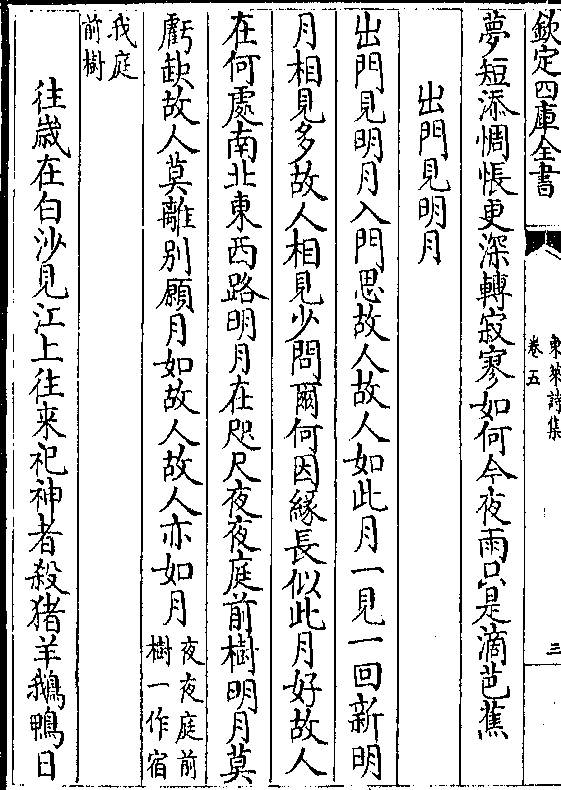 欽定四庫全書
東萊詩集
卷五
三
夢短添惆悵更深轉寂寥如何今夜雨只是滴芭蕉
出門見明月
出門見明月入門思故人故人如此月一見一回新明
月相見多故人相見少問爾何因緣長似此月好故人
在何處南北東西路明月在咫尺夜夜庭前樹明月莫
虧缺故人莫離別願月如故人故人亦如月
夜夜庭前
樹一作宿
我庭
前樹
往歲在白沙見江上往来祀神者殺猪羊鵝鴨日